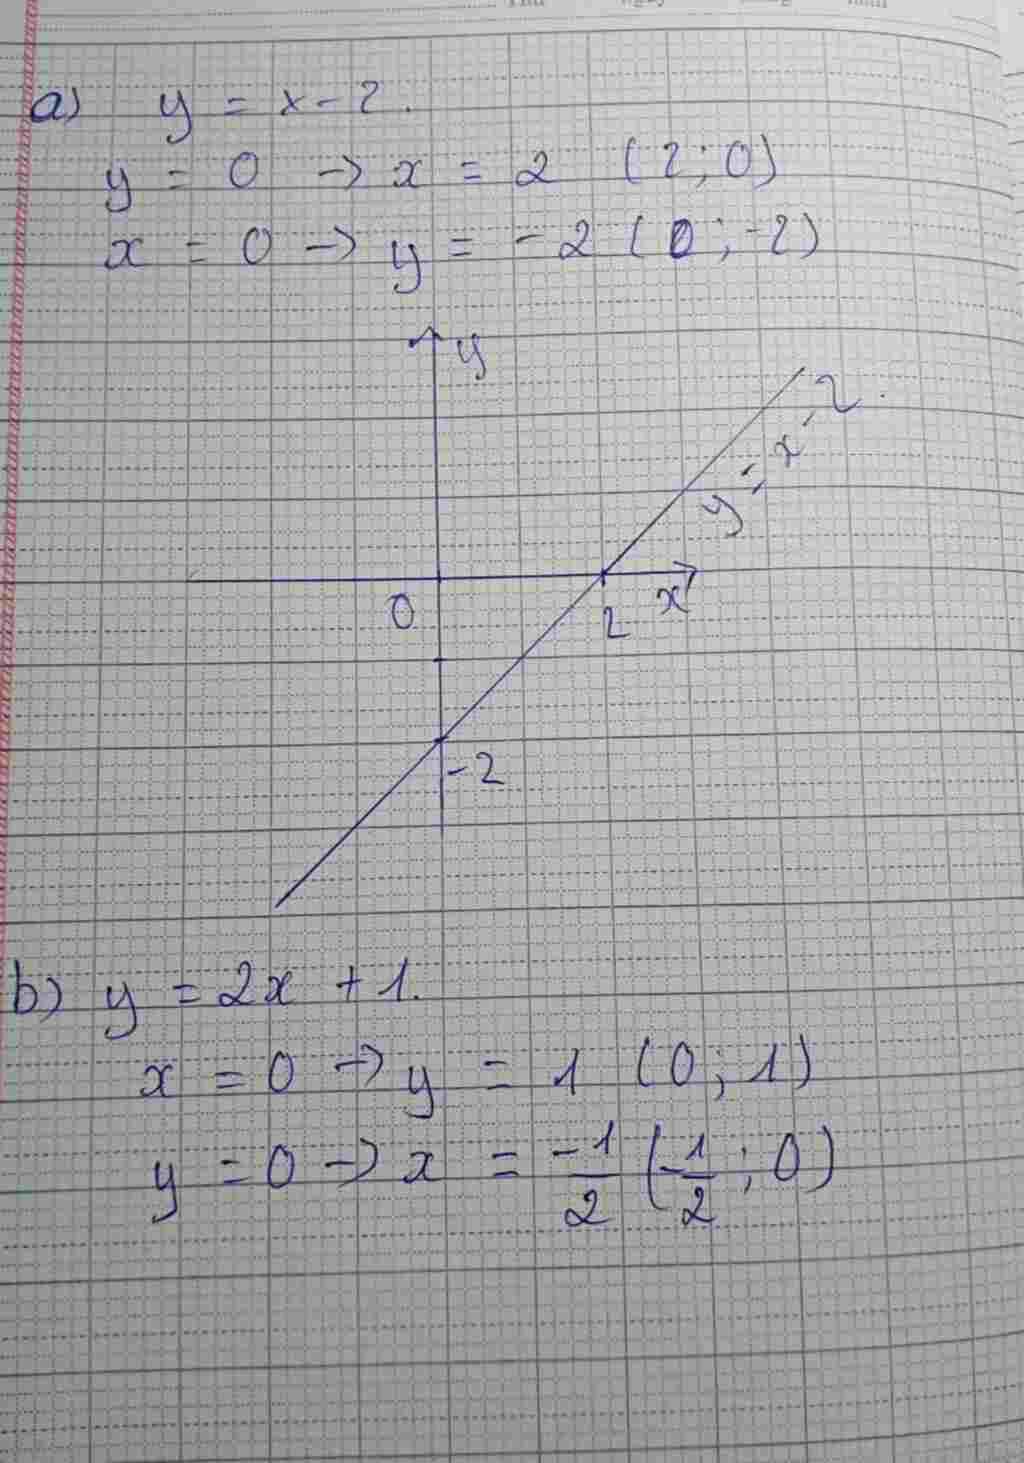 a) y = x - 2.
y = 0 → x = 2 (2; 0)
x = 0 → y = -2 (0; -2)
y
y = x - 2.
0
2
x
-2
b) y = 2x + 1.
x = 0 → y = 1 (0; 1)
y = 0 → x = -1/2 (-1/2; 0)